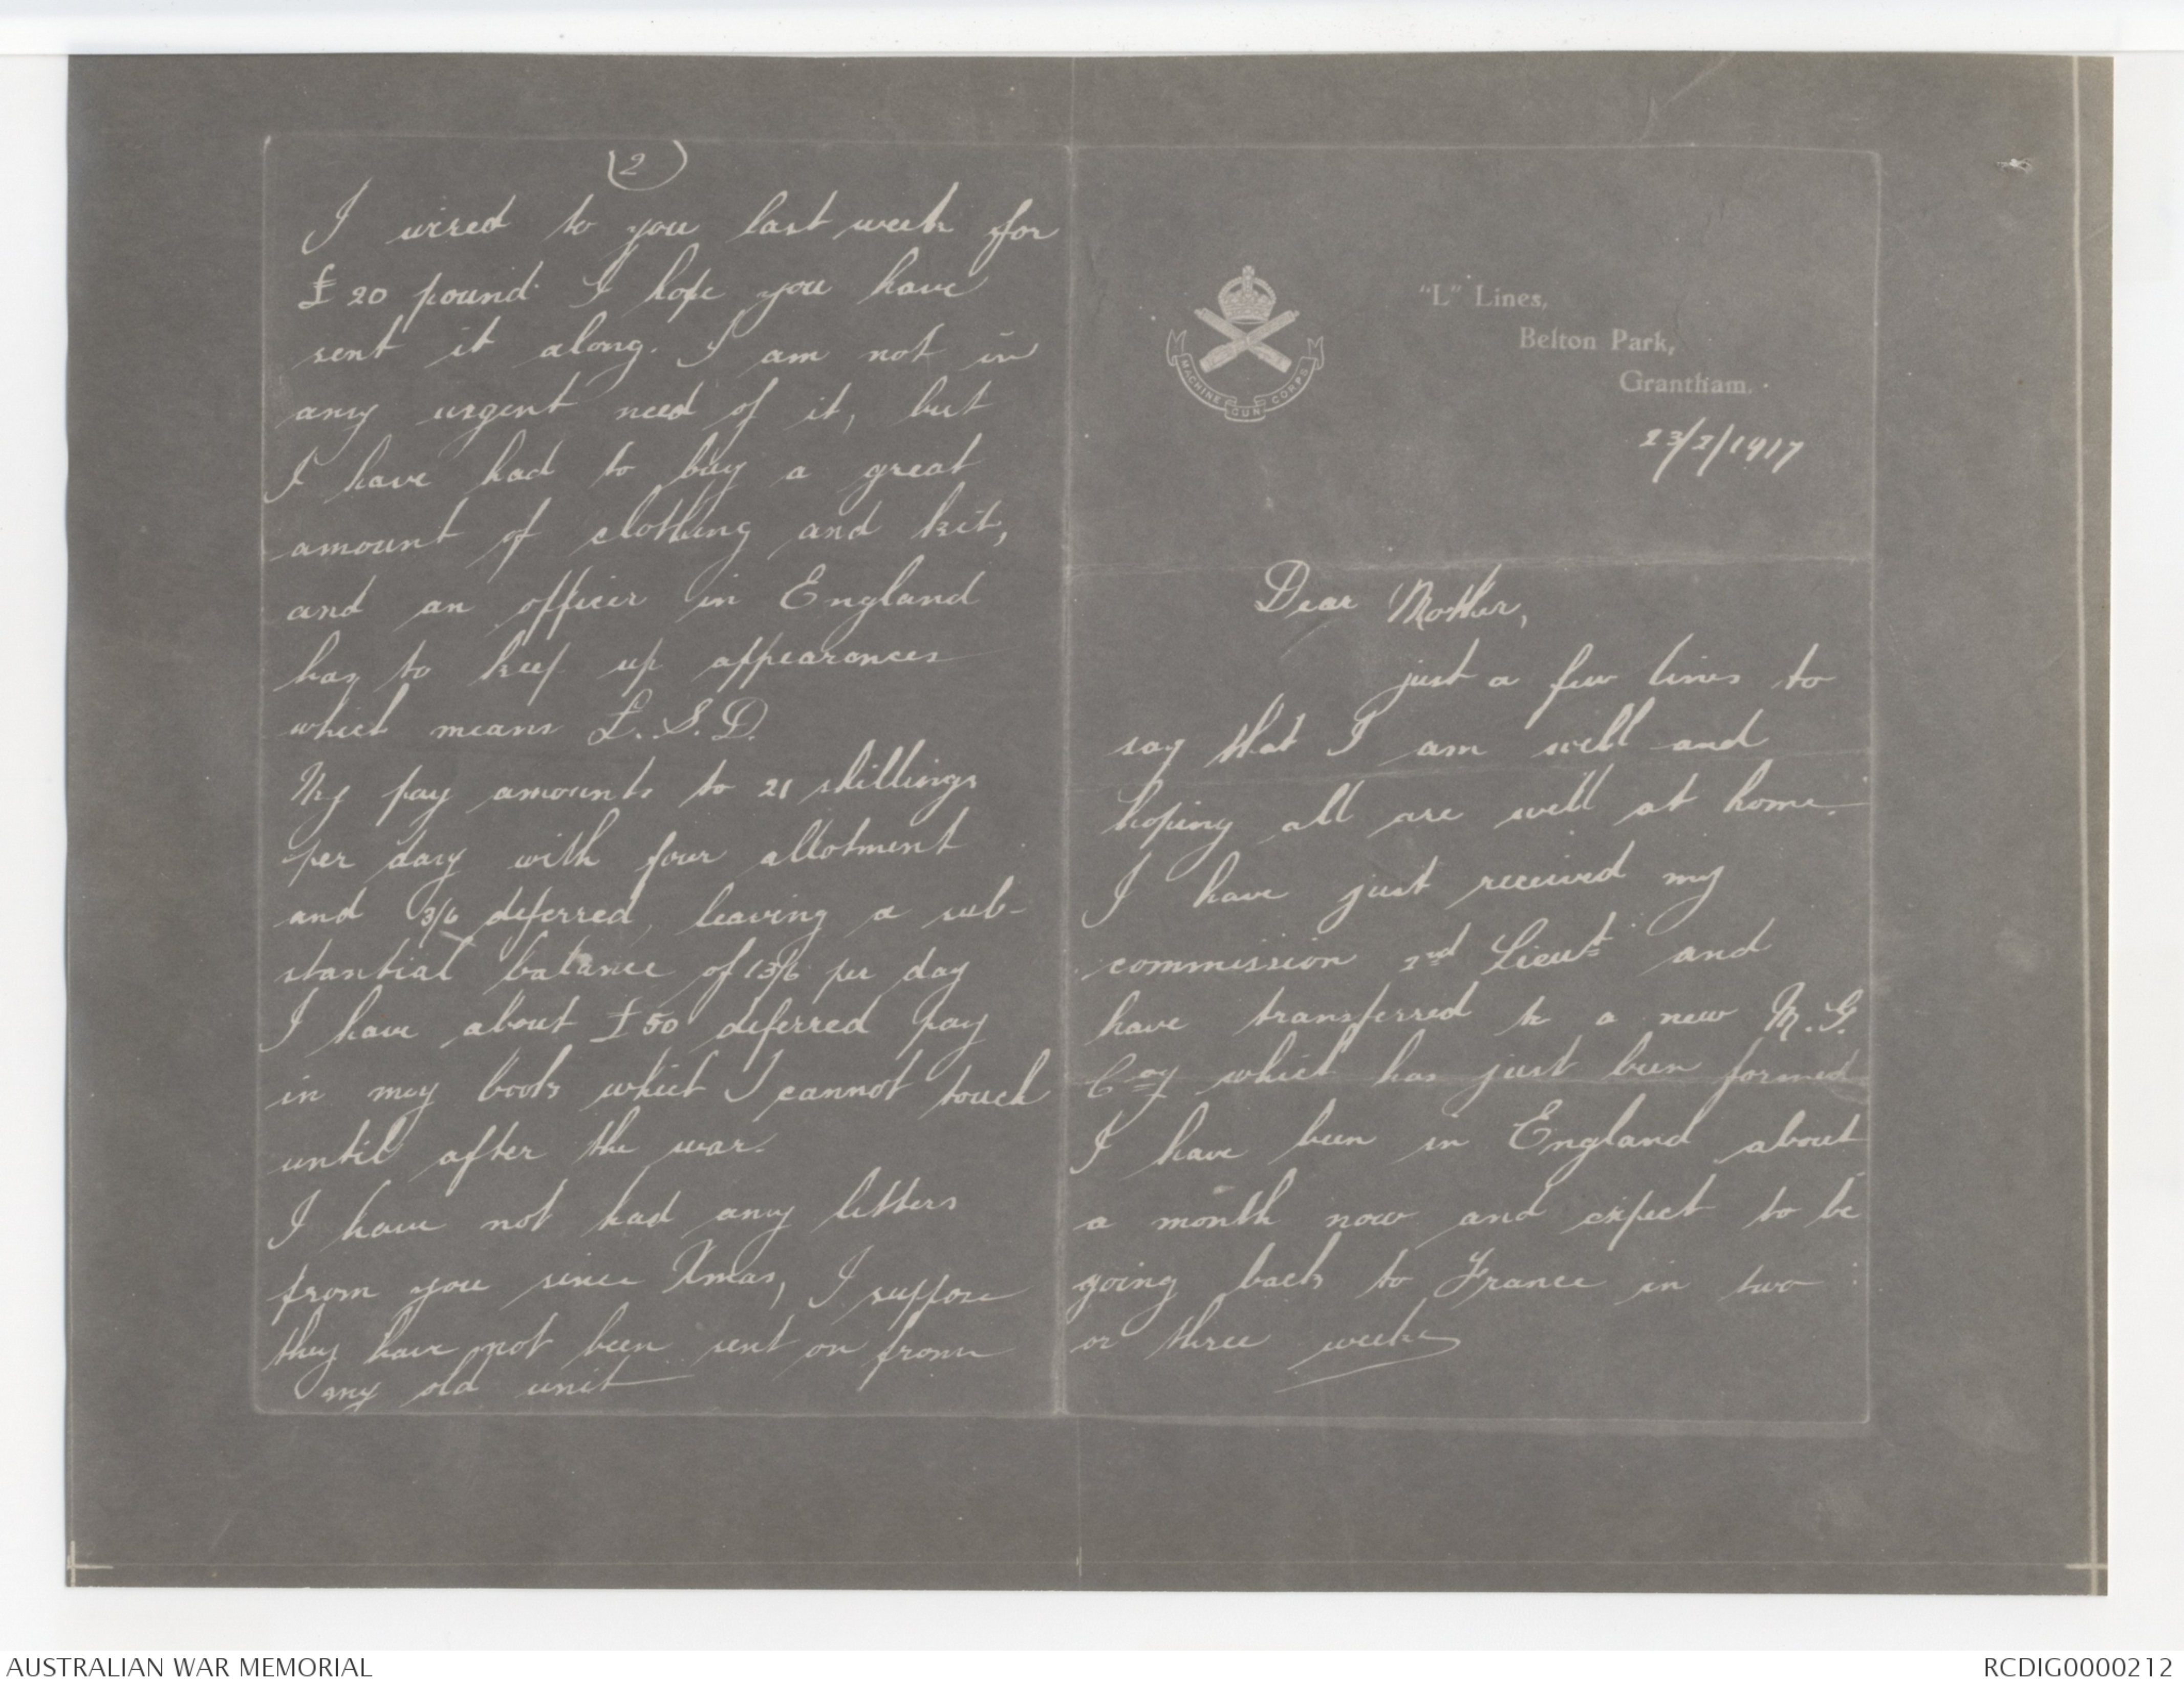 MACHINE GUN CORPS
"L" Lines,
Belton Park,
Grantham.
23/2/1917
Dear Mother,
just a few lines to
say that I am well and
hoping all are well at home.
I have just received my
commission 2nd Lieut and
have transferred to a new M.G.
Coy which has just been formed
I have been in England about
a month now and expect to be
going back to France in two
or three weeks
(2)
I wired to you last week for
£20 pound. I hope you have
sent it along. I am not in
any urgent need of it, but
I have had to buy a great
amount of clothing and kit,
and an officer in England
has to keep up appearances
which means L.S.D.
My pay amounts to 21 shillings
per day with four allotment
and 3/6 deferred, leaving a sub-
stantial balance of 13/6 per day
I have about £50 deferred pay
in my book which I cannot touch
until after the war.
I have not had any letters
from you since Xmas, I suppose
they have not been sent on from
my old unit
AUSTRALIAN WAR MEMORIAL
RCDIG0000212